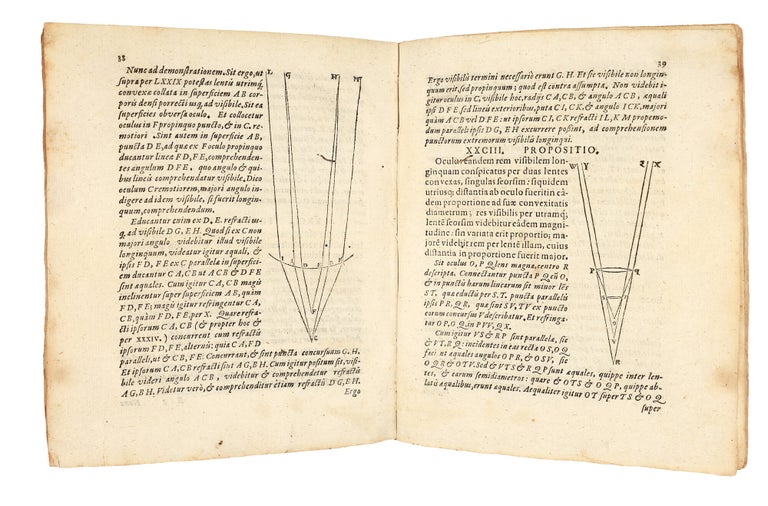 38
Nunc ad demonstrationem. Sit ergo, ut
supra per LXXIX potestas lentis utrimq́;
convexæ collata in superficiem A B cor-
poris densi porrecti usq́, ad visibile. Sit ea
superficies obversa oculo. Et collocetur
oculus in F propinquo puncto, & in C. re-
motiori. Sint autem in superficie A B,
puncta D E, ad quæ ex F oculo propinquo
ducantur lineæ F D, F E, comprehenden-
tes angulum D F E, quo angulo & qui-
bus lineis comprehendatur visibile. Dico
oculum C remotiorem, majori angulo in-
digere ad idem visibile, si fuerit longin-
quum, comprehendendum.
Educantur enim ex D. E. refracti us-
q́, ad visibile D G, E H. Quod si ex C non
majori angulo videbitur illud visibile
longinquum, videatur igitur æquali, &
ipsis F D, F E ex C parallelæ in superfici-
em ducantur C A, C B ut A C B & D F E
sint æquales. Cum igitur C A, C B magis
inclinentur super superficiem A B, quàm
F D, F E; magis igitur refringentur C A,
C B, quàm F D, F E, per X. Quare refra-
cti ipsorum C A, C B (& propter hoc &
per XXXIV.) concurrent cum refractis
ipsorum F D, F E, alterni; quia C A, F D
paralleli, ut & C B, F E. Concurrant, & sint puncta concursuum G. H.
Et ipsorum C A, C B refracti sint A G, B H. Cum igitur positum sit, visi-
bile videri angulo A C B, videbitur & comprehendetur refractis
A G, B H. Videtur verò, & comprehenditur etiam refractis D G, E H.
Ergo
L G H M
I A D E B K
F
C
39
Ergo visibilis termini necessariò erunt G. H. Et sic visibile non longin-
quum erit, sed propinquum; quod est contra assumpta. Non videbit i-
gitur oculus in C, visibile hoc, radijs C A, C B, & angulo A C B, æquali
ipsi D F E sed lineis exterioribus, puta C I, C K, & angulo I C K, majori
quàm A C B vel D F E: ut ipsorum C I, C K refracti I L, K M propemo-
dum paralleli ipsis D G, E H excurrere possint, ad comprehensionem
punctorum extremorum visibilis longinqui.
XXCIII. PROPOSITIO.
Oculus eandem rem visibilem lon-
ginquam conspicatus per duas lentes
convexas, singulas seorsim: siquidem
utriusq; distantia ab oculo fuerit in eâ-
dem proportione ad suæ convexitatis
diametrum; res visibilis per utramq;
lentem seorsim videbitur eâdem magni-
tudine: sin variata erit proportio; ma-
jorẽ videbit rem per lentẽ illam, cuius
distantia in proportione fuerit major.
Sit oculus O, P Q lens magna, centro R
descripta. Connectantur puncta P Q cũ O,
& in punctis harum linearum sit minor lẽs
S T. quæ eductis per S. T. punctis parallelis
ipsis P R, Q R, quæ sint S V, T V ex puncto
eorum concursus V describatur. Et refringã-
tur O P, O Q in P VV, Q X.
Cum igitur V S & R P sint parallelæ, sic
& V T, R Q: incidentes in eas rectæ O S, O Q
facient æquales angulos O P R, & O S V, sic
& O Q R & O T V. Sed & V T S & R Q P sunt æquales, quippe inter len-
tes, & earum semidiametros: quare & O T S & O Q P, quippe ab-
latis æqualibus, erunt æquales. Aequaliter igitur O T super T S & O Q
super
R